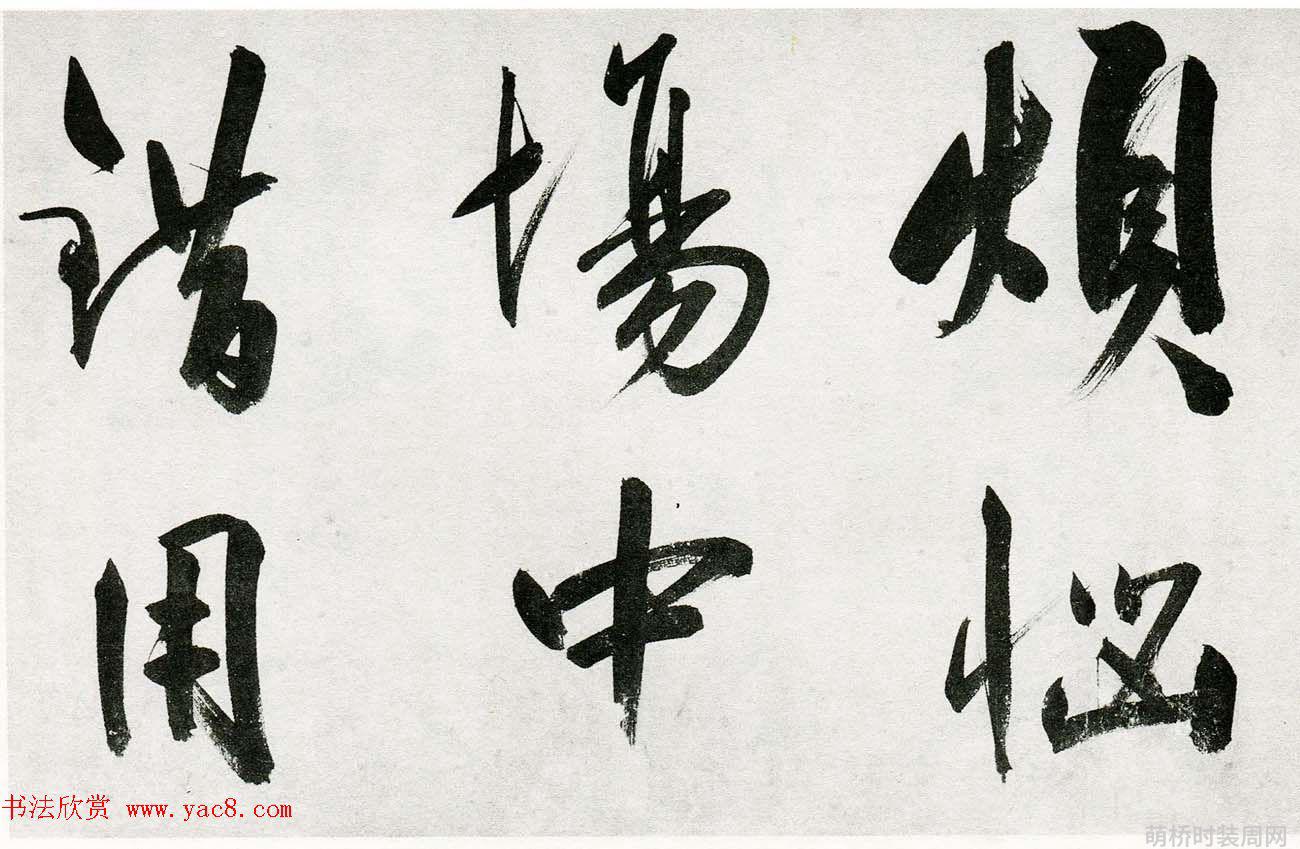 煩惱
場中
錯用
书法欣赏 www.yac8.com
萌桥时装周网